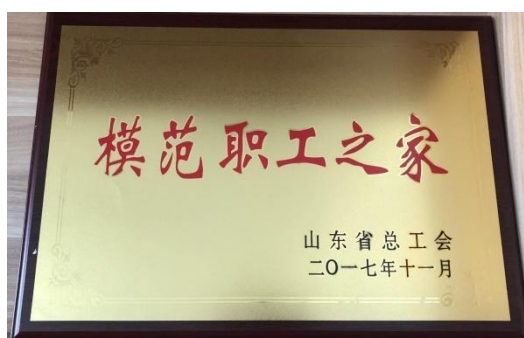 模范职工之家
山东省总工会
二〇一七年十一月